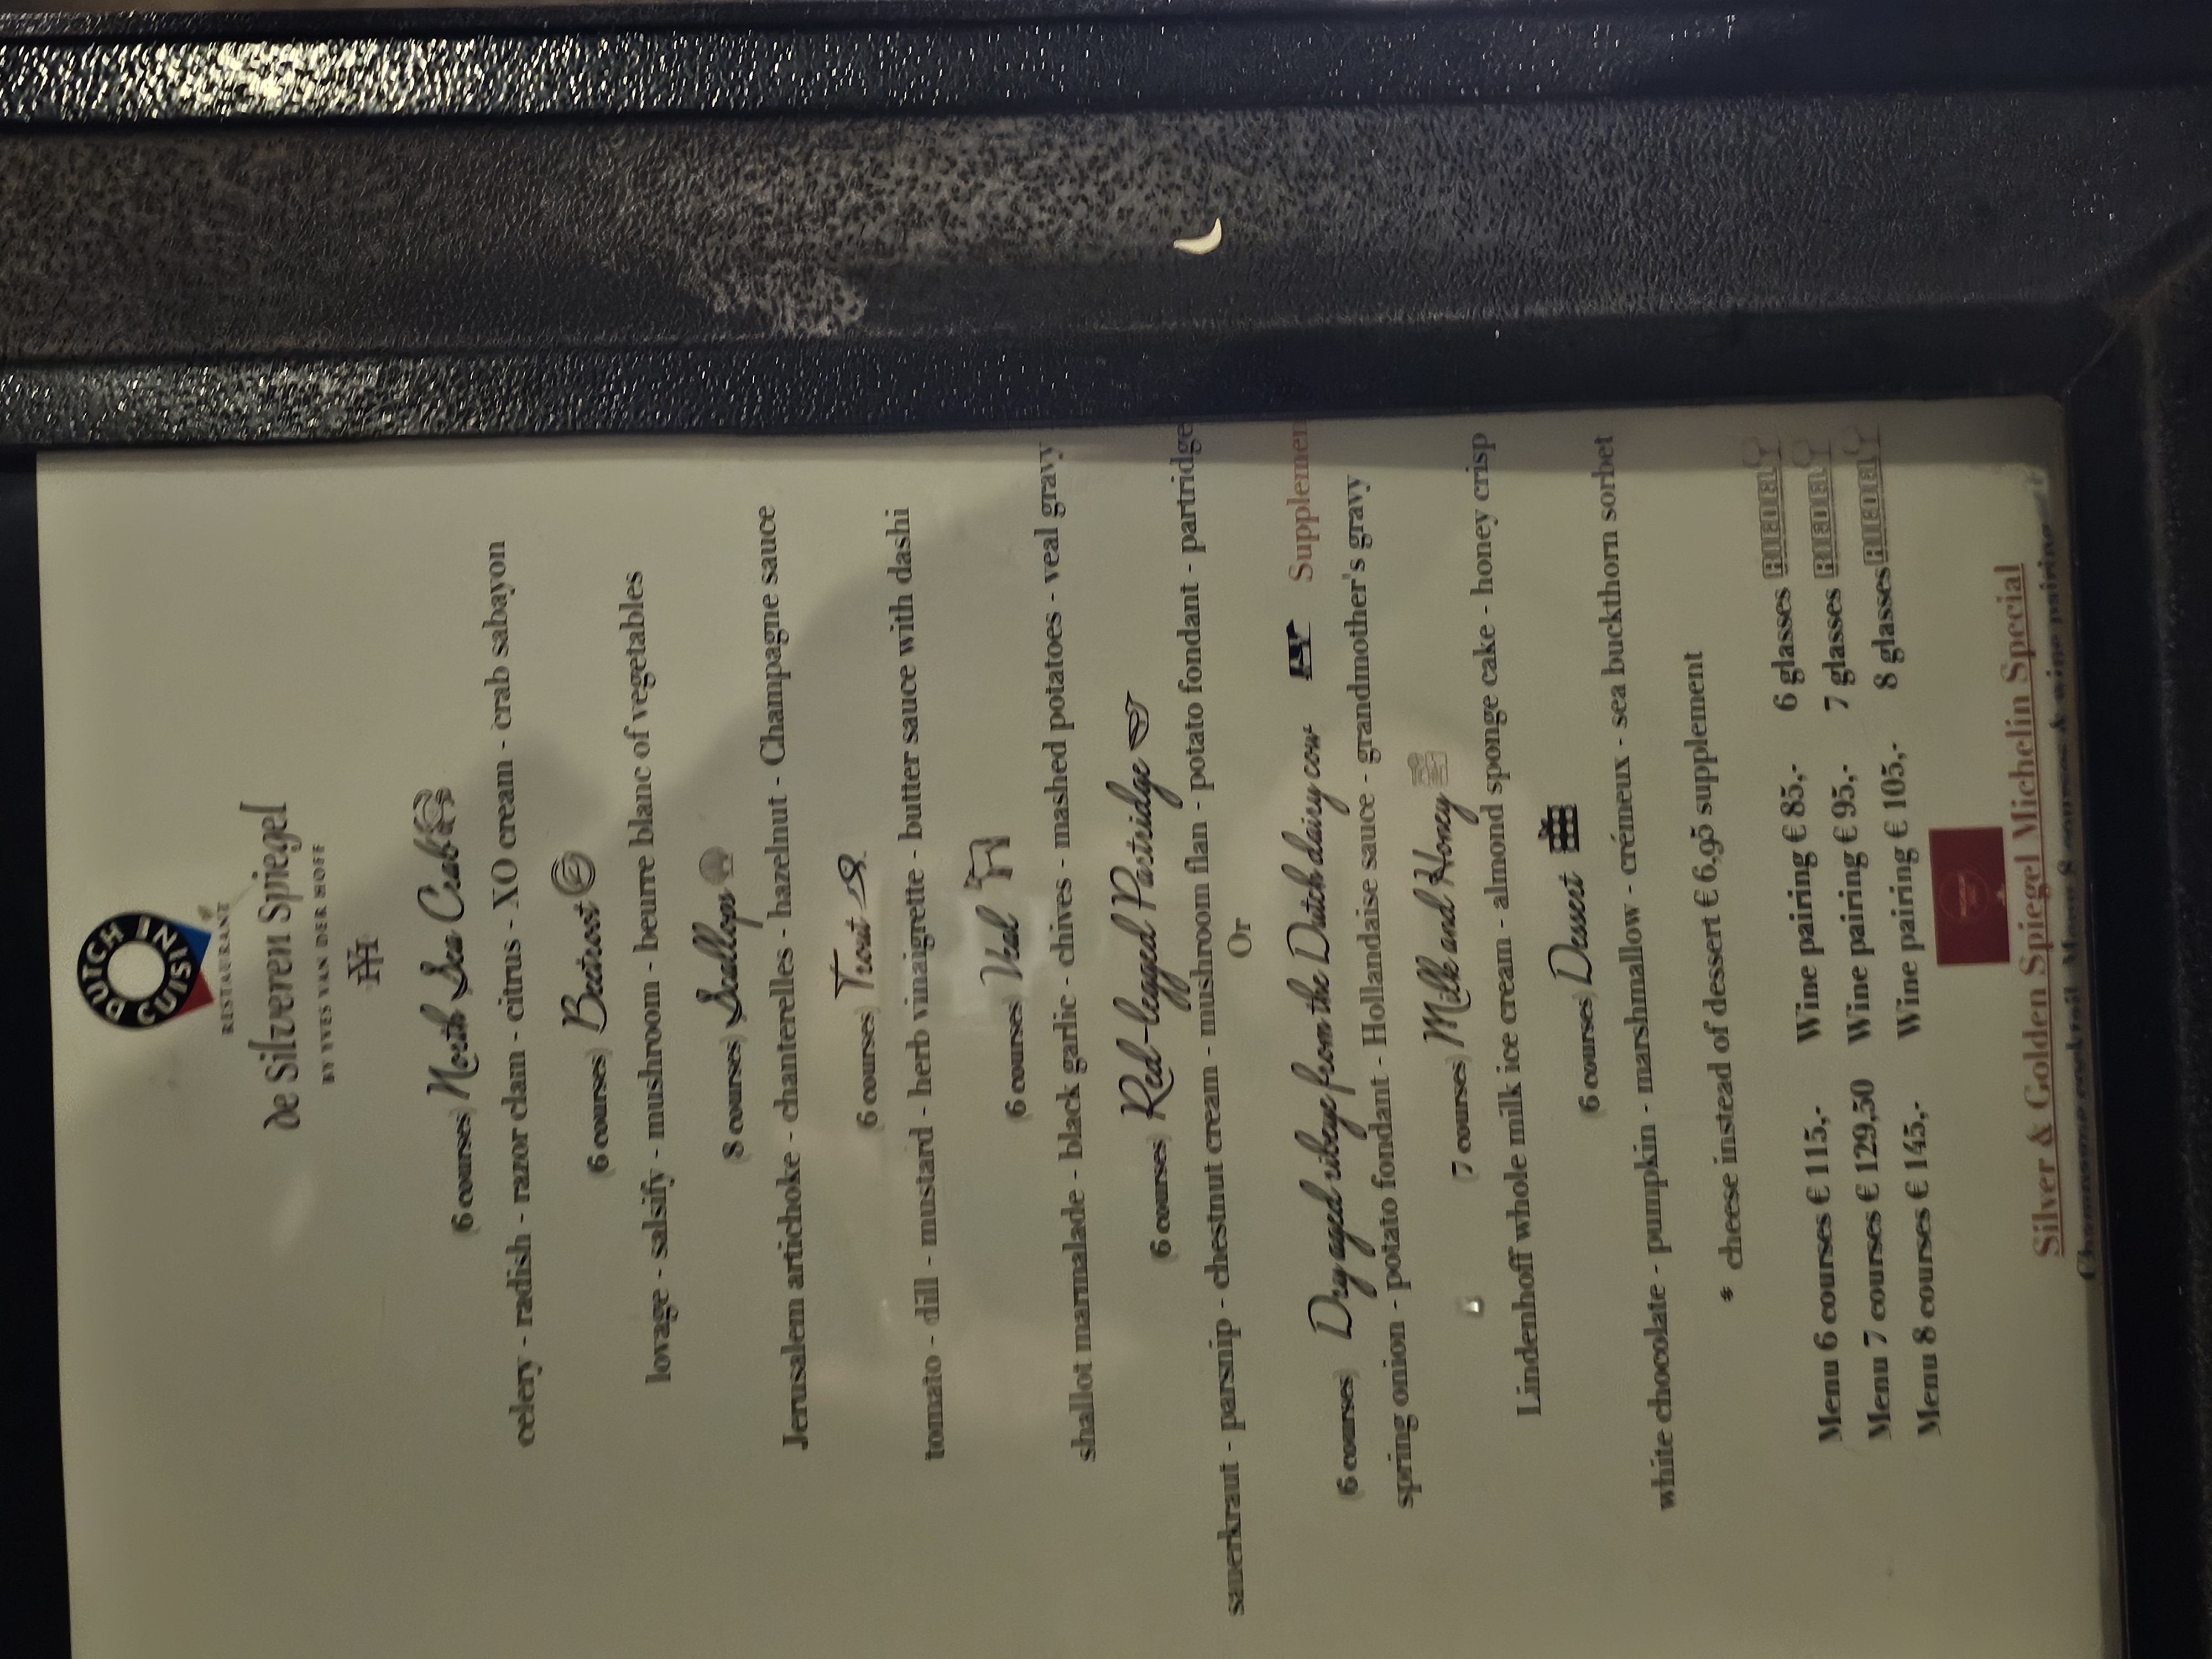 DUTCH CUISINE
RESTAURANT
de Silveren Spiegel
BY YVES VAN DER HOFF
(6 courses) North Sea Crab
celery - radish - razor clam - citrus - XO cream - crab sabayon
(6 courses) Beetroot
lovage - salsify - mushroom - beurre blanc of vegetables
(8 courses) Scallops
Jerusalem artichoke - chanterelles - hazelnut - Champagne sauce
(6 courses) Trout
tomato - dill - mustard - herb vinaigrette - butter sauce with dashi
(6 courses) Veal
shallot marmalade - black garlic - chives - mashed potatoes - veal gravy
(6 courses) Red-legged Partridge
sauerkraut - parsnip - chestnut cream - mushroom flan - potato fondant - partridge
Or
(6 courses) Dry aged ribeye from the Dutch daisy cow Supplemen
spring onion - potato fondant - Hollandaise sauce - grandmother's gravy
(7 courses) Milk and Honey
Lindenhoff whole milk ice cream - almond sponge cake - honey crisp
(6 courses) Dessert
white chocolate - pumpkin - marshmallow - crémeux - sea buckthorn sorbet
* cheese instead of dessert € 6,95 supplement
Menu 6 courses € 115,- Wine pairing € 85,- 6 glasses RIEDEL
Menu 7 courses € 129,50 Wine pairing € 95,- 7 glasses RIEDEL
Menu 8 courses € 145,- Wine pairing € 105,- 8 glasses RIEDEL
Silver & Golden Spiegel Michelin Special
Champagne cocktail, Menu 8 courses & wine pairing